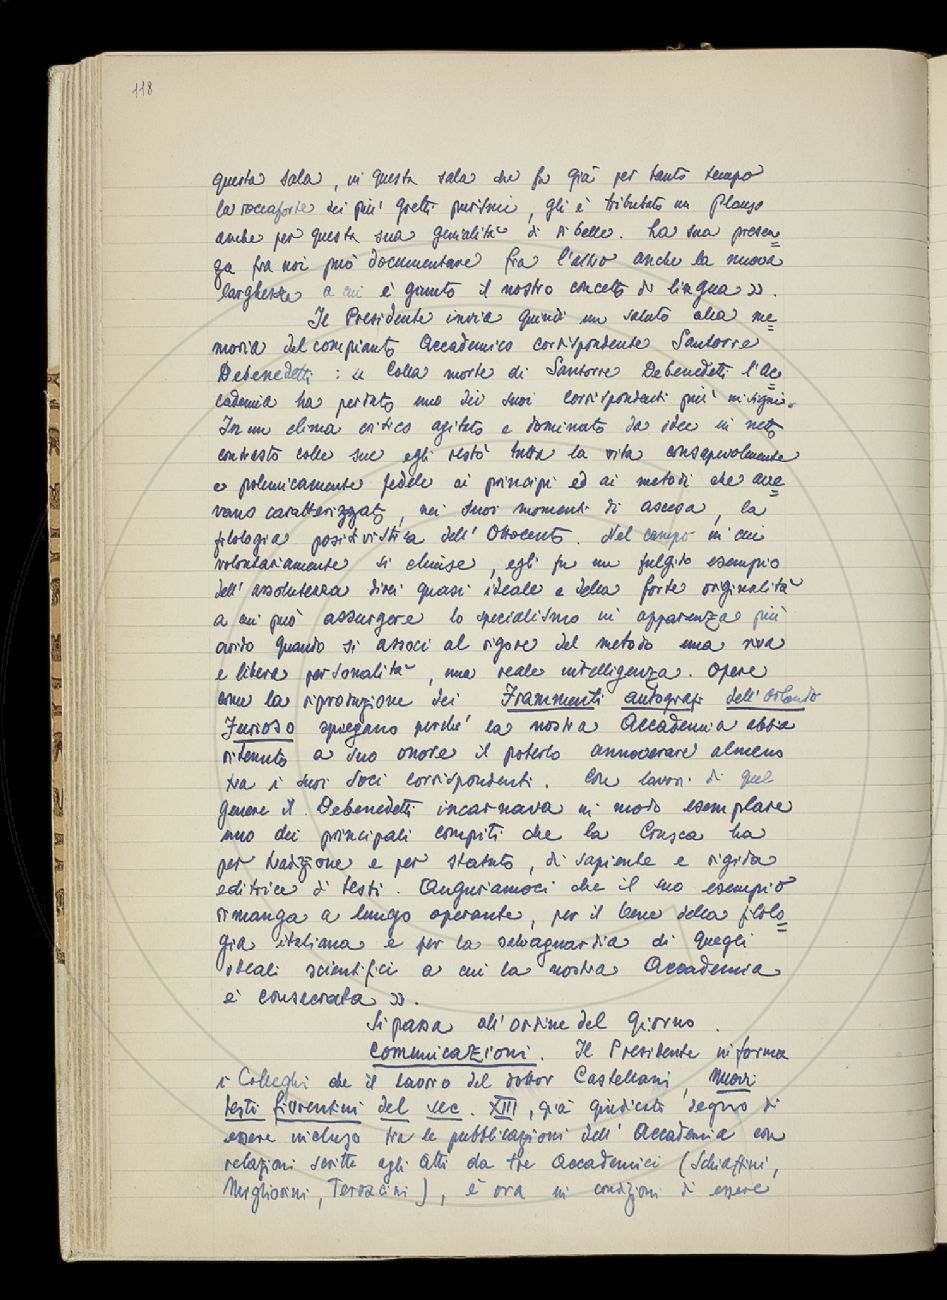 118
questa sala, in questa sala che fu già per tanto tempo
la roccaforte dei più gretti puristi, gli è tributato un plauso
anche per questa sua genialità di ribelle. La sua presen=
za fra noi può documentare fra l'altro anche la nuova
larghezza a cui è giunto il nostro concetto di lingua».
Il Presidente invia quindi un saluto alla me=
moria del compianto Accademico corrispondente Santorre
Debenedetti: «Colla morte di Santorre Debenedetti l'Ac=
cademia ha perduto uno dei suoi corrispondenti più insigni.
In un clima critico agitato e dominato da idee in netto
contrasto colle sue egli restò tutta la vita consapevolmente
e polemicamente fedele ai principi ed ai metodi che ave=
vano caratterizzato, nei suoi momenti di ascesa, la
filologia positivistica dell'Ottocento. Nel campo in cui
volontariamente si chiuse, egli fu un fulgido esempio
dell'assolutezza direi quasi ideale e della forte originalità
a cui può assurgere lo specialismo in apparenza più
arido quando si associ al rigore del metodo una viva
e libera personalità, una reale intelligenza. Opere
come la riproduzione dei Frammenti autografi dell'Orlando
Furioso spiegano perché la nostra Accademia abbia
ritenuto a suo onore il poterlo annoverare almeno
tra i suoi Soci corrispondenti. Con lavori di quel
genere il Debenedetti incarnava in modo esemplare
uno dei principali compiti che la Crusca ha
per tradizione e per statuto, di sapiente e rigida
editrice di testi. Auguriamoci che il suo esempio
rimanga a lungo operante, per il bene della filolo=
gia italiana e per la salvaguardia di quegli
ideali scientifici a cui la nostra Accademia
è consecrata».
Si passa all'ordine del giorno.
Comunicazioni. Il Presidente informa
i Colleghi che il lavoro del dottor Castellani, Nuovi
testi fiorentini del sec. XIII, già giudicato degno di
essere incluso tra le pubblicazioni dell'Accademia con
relazioni scritte agli Atti da tre Accademici (Schiaffini,
Migliorini, Terracini), è ora in condizioni di essere